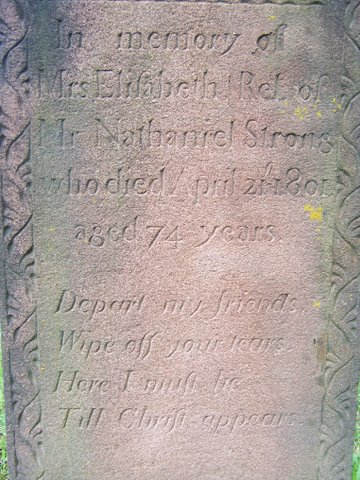 In memory of
Mrs Elisabeth Rel. of
Mr Nathaniel Strong
who died April 21st 1801
aged 74 years
Depart my friends,
Wipe off your tears
Here I muſt lie
Till Chriſt appears